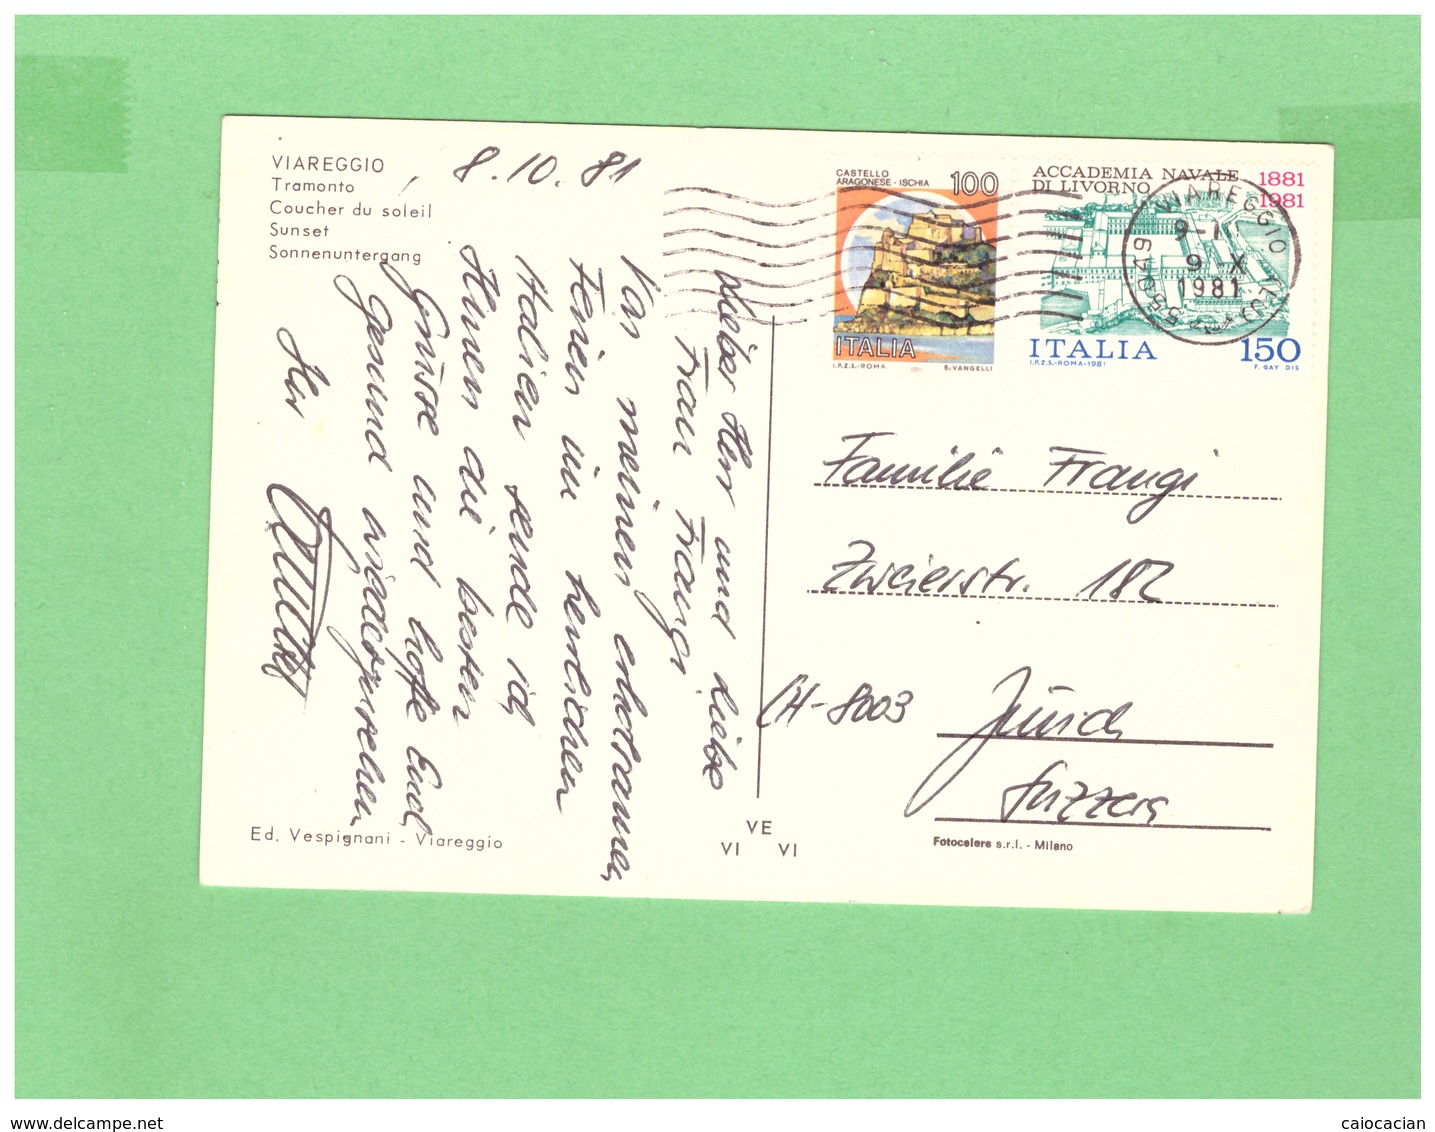 VIAREGGIO
Tramonto
Coucher du soleil
Sunset
Sonnenuntergang
8.10.81
Lieber Herr und liebe
Frau Frangi
Von meinen erholsamen
Ferien im herrlichen
Italien sende ich
Ihnen die besten
Grüsse und hoffe Euch
gesund wiederzusehen
Ihr
Ed. Vespignani - Viareggio
VE
VI VI
CASTELLO
ARAGONESE - ISCHIA 100
ITALIA
I.P.Z.S.-ROMA E. VANGELLI
ACCADEMIA NAVALE
DI LIVORNO
1881
1981
ITALIA 150
I.P.Z.S.-ROMA-1981 F. GAY DIS
VIAREGGIO
9 X
1981
Familie Frangi
Zweierstr. 182
CH-8003 Zürich
Svizzera
Fotocelere s.r.l. - Milano
www.delcampe.net
caiocacian